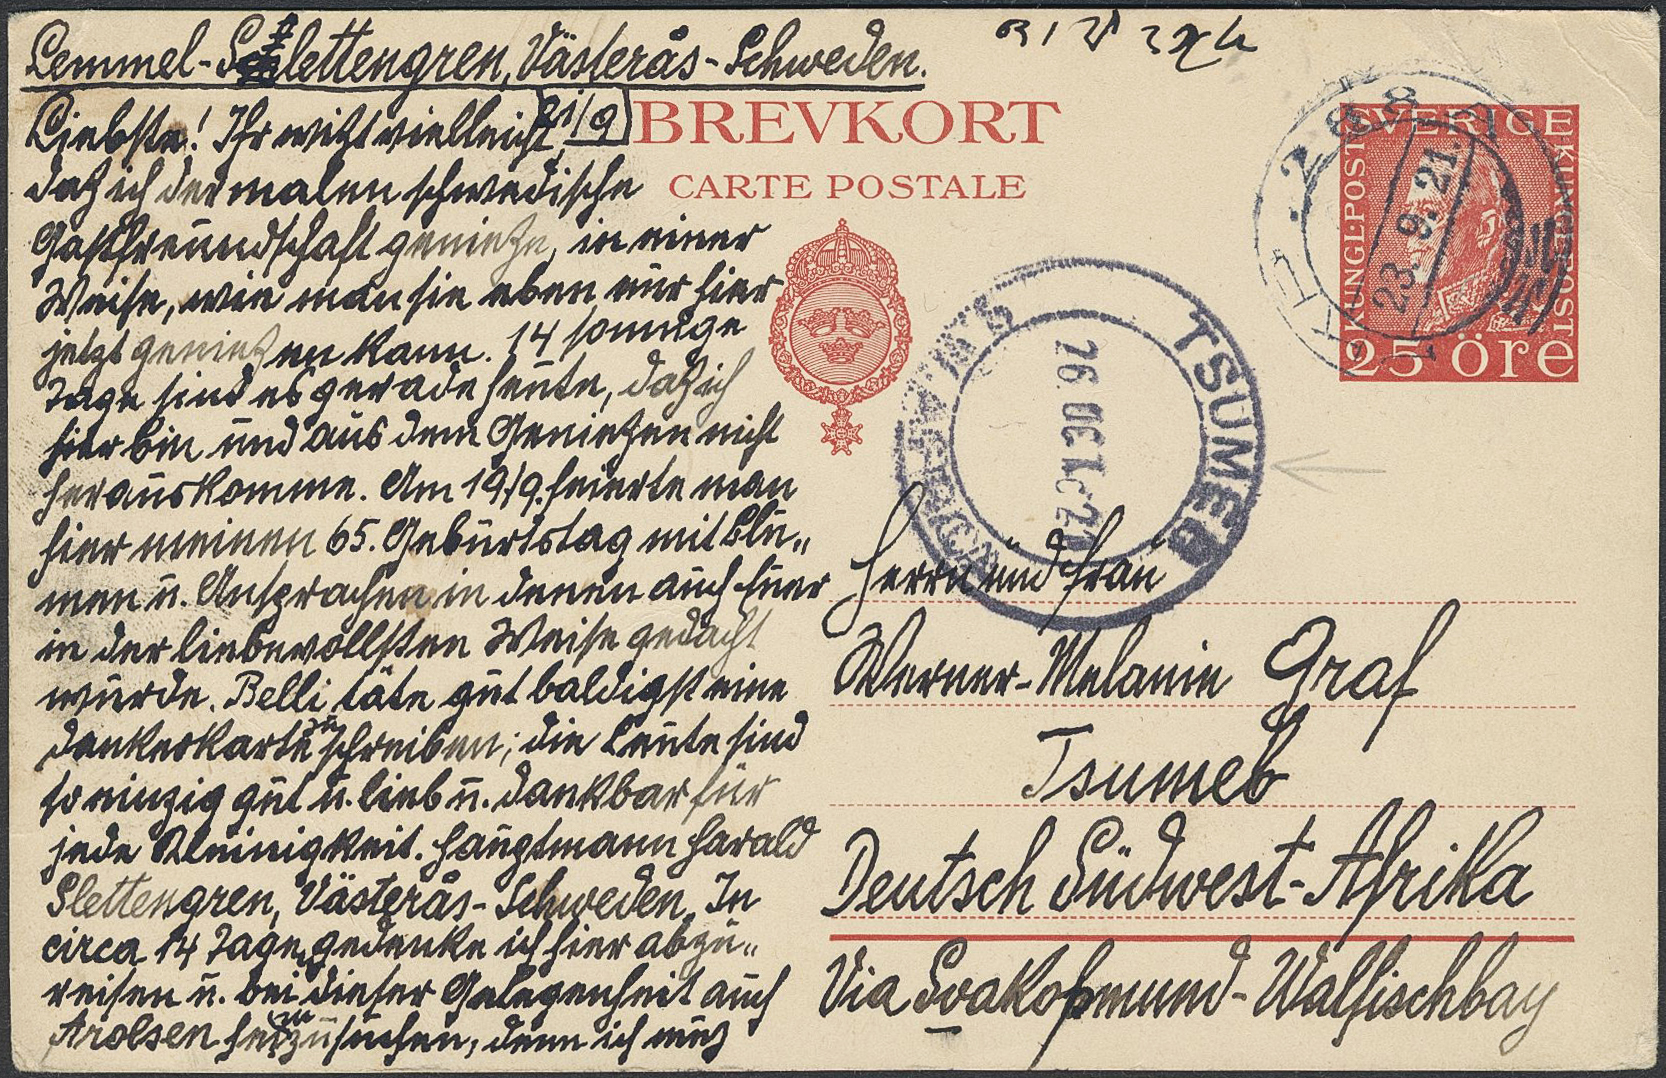 Lemmel-Slettengren, Västerås-Schweden.
21/9
Liebste! Ihr wißt vielleicht,
daß ich dermalen schwedische
Gastfreundschaft genieße, in einer
Weise, wie man sie eben nur hier
jetzt genießen kann. 14 sonnige
Tage sind es gerade heute, daß ich
hier bin und aus dem Genießen nicht
herauskomme. Am 19/9. feierte man
hier meinen 65. Geburtstag mit Blu„
men u. Ansprachen in denen auch Euer
in der liebevollsten Weise gedacht
wurde. Belli täte gut baldigst eine
Dankeskarte zu schreiben; die Leute sind
so einzig gut u. lieb u. dankbar für
jede Kleinigkeit. Hauptmann Harald
Slettengren, Västerås-Schweden. In
circa 14 Tage gedenke ich hier abzu„
reisen u. bei dieser Gelegenheit auch
Arolsen heimzusuchen, denn ich muß
BREVKORT
CARTE POSTALE
SVERIGE
KUNGL. POST
KUNGL. POST
25 öre
23. 9. 21.
TSUMEB
S.W. AFRICA
26 OCT 1921
Herrn und Frau
Werner-Melanie Graf
Tsumeb
Deutsch Südwest-Afrika
Via Svakopmund-Walfischbay